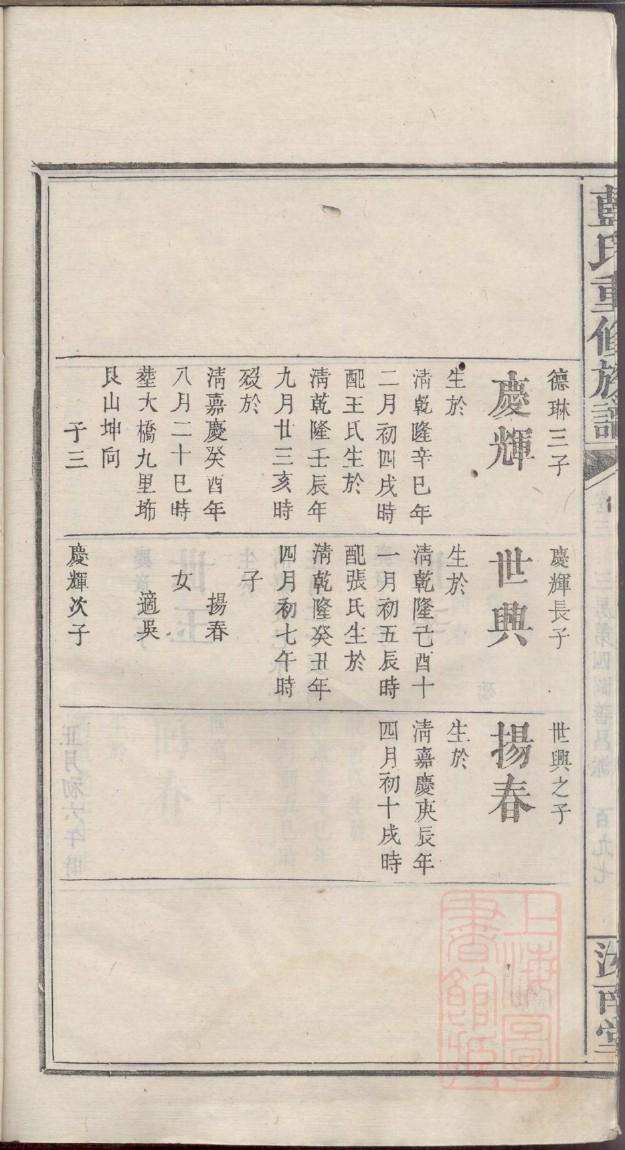 藍氏重修族譜
汝南堂
德琳三子
慶輝
生於
淸乾隆辛巳年
二月初四戌時
配王氏生於
淸乾隆壬辰年
九月廿三亥時
歿於
淸嘉慶癸酉年
八月二十巳時
塟大橋九里埁
艮山坤向
子三
慶輝長子
世興
生於
淸乾隆己酉十
一月初五辰時
配張氏生於
淸乾隆癸丑年
四月初七午時
子
揚春
女
適吳
慶輝次子
世興之子
揚春
生於
淸嘉慶庚辰年
四月初十戌時
上海圖
書館藏